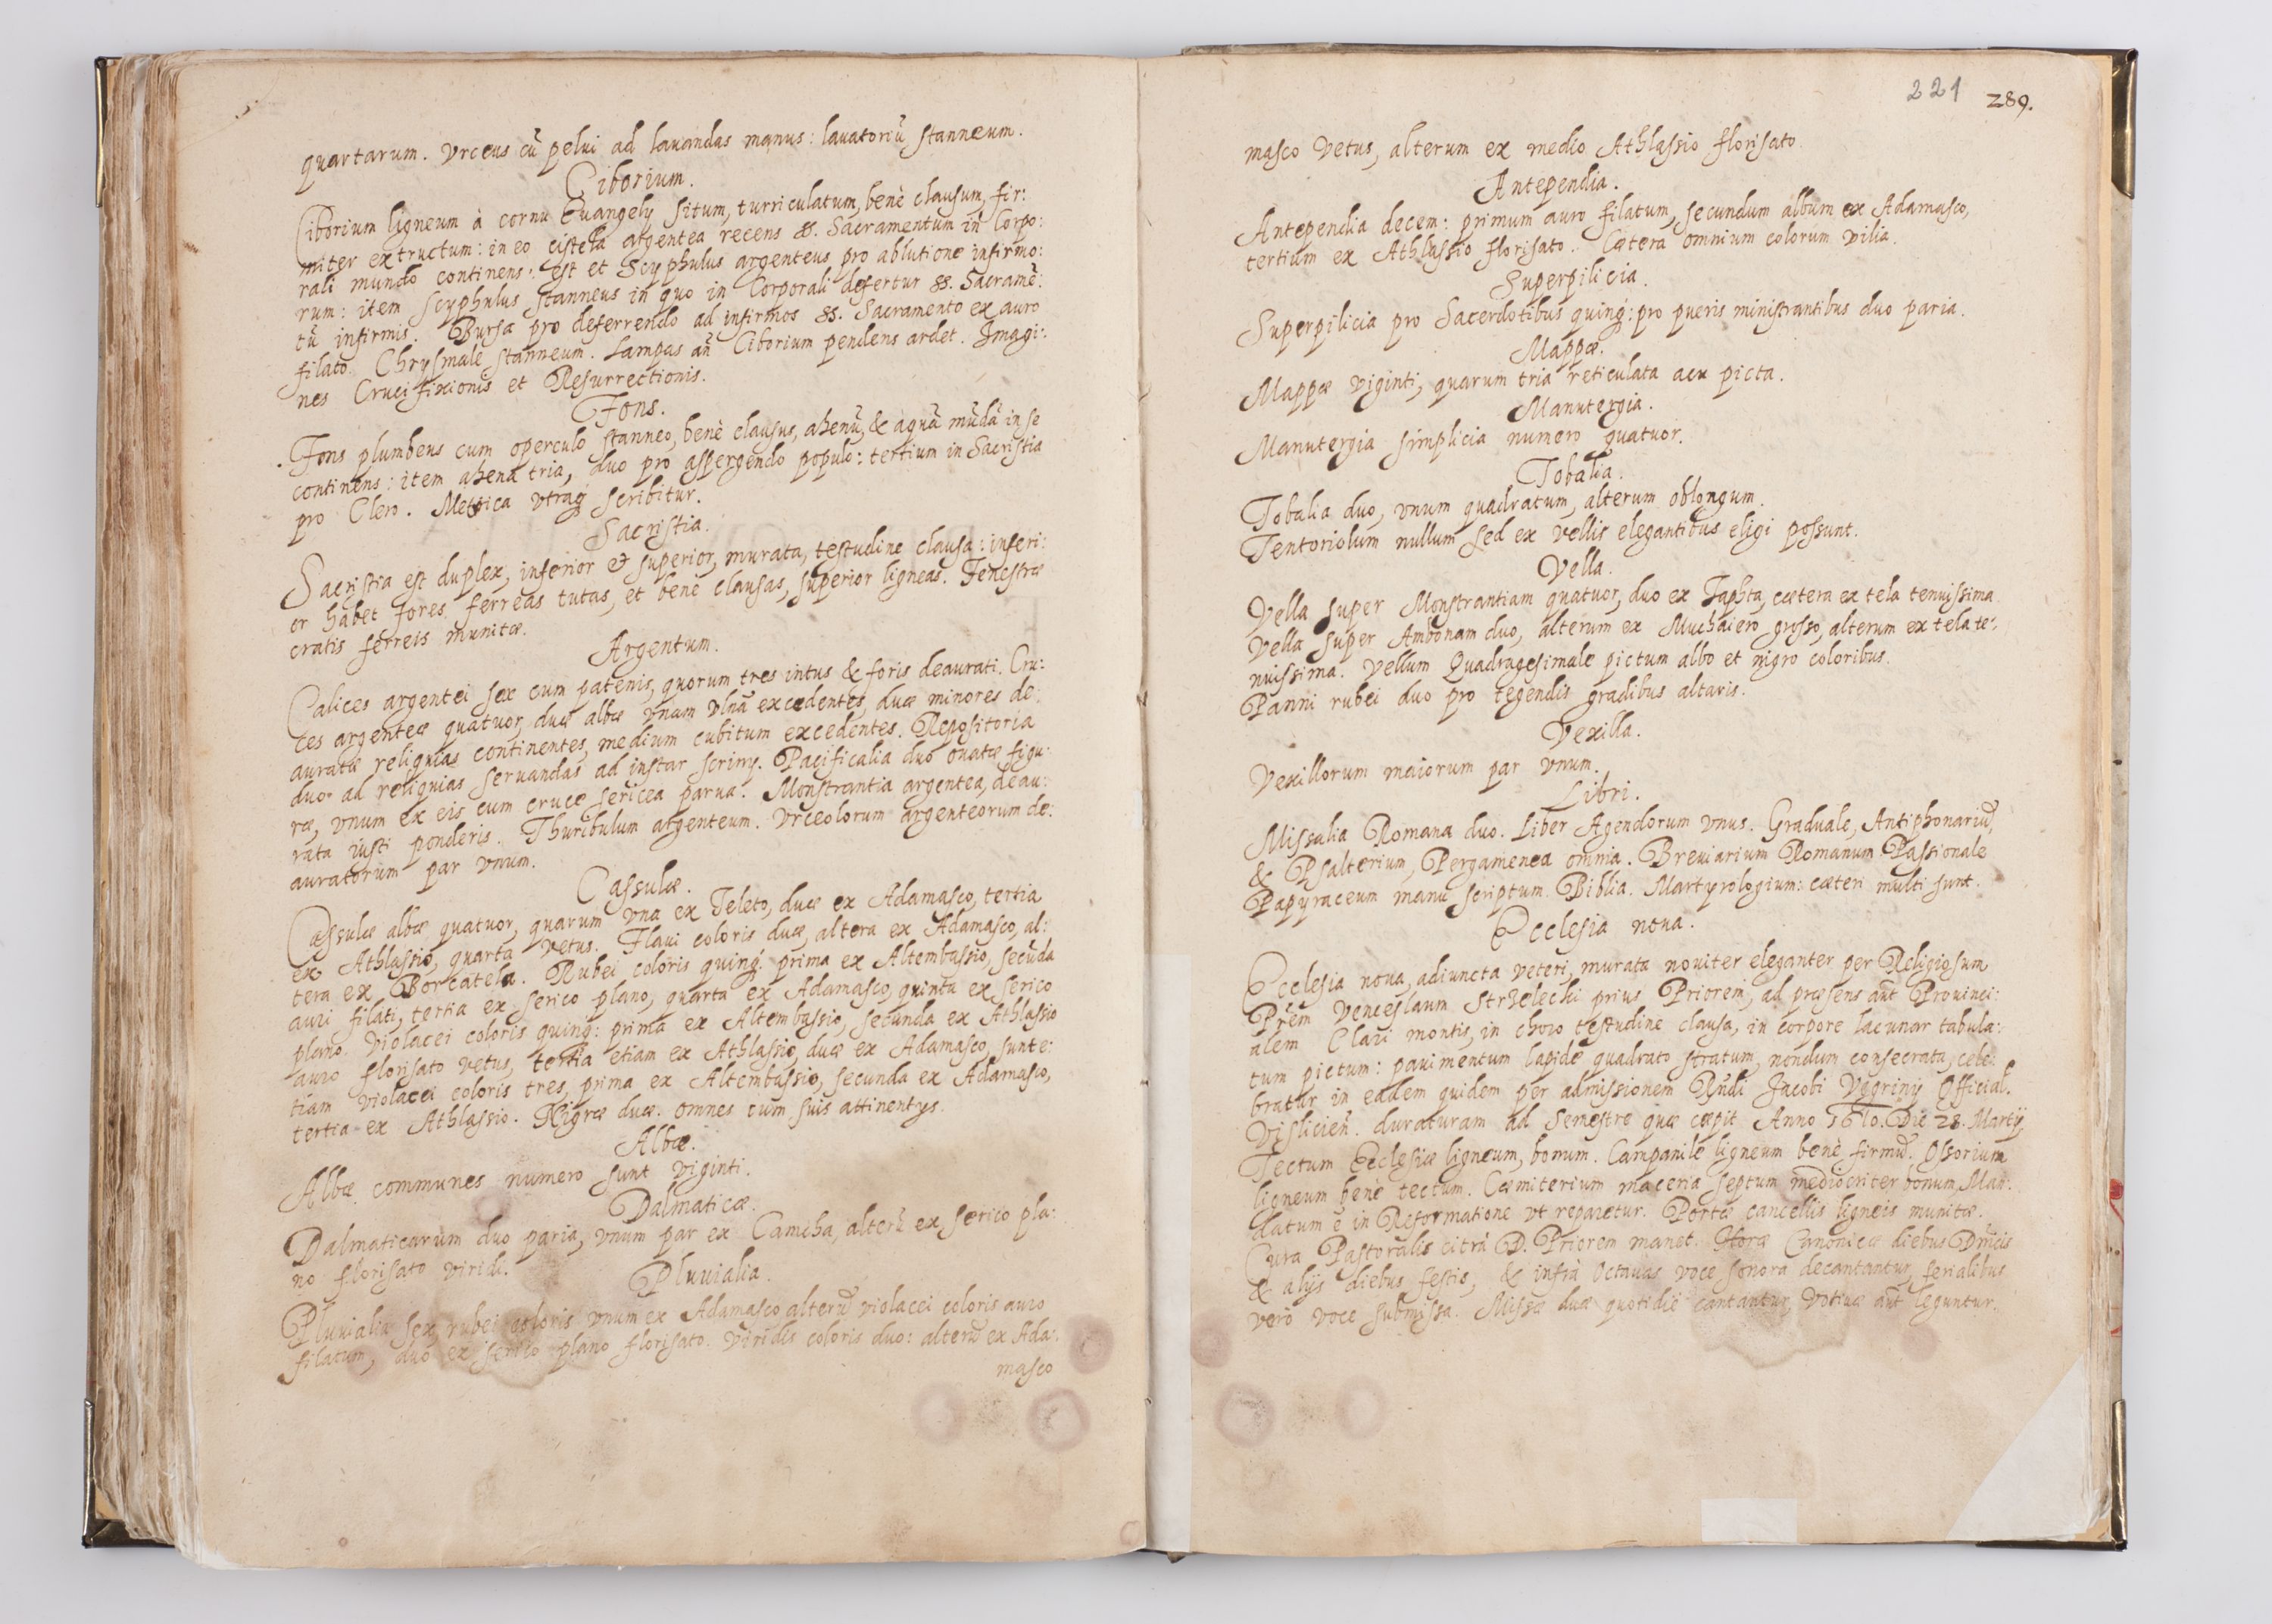 quartarum. Vrceus cũ pelui ad lauandas manus: lauatoriũ stanneum.
Ciborium.
Ciborium ligneum à cornu Euangelÿ situm, turriculatum, benè clausum, fir:
miter extructum: in eo cistella argentea recens SS. Sacramentum in Corpo:
rali mundo continens: est et Scyphulus argenteus pro ablutione infirmo:
rum: item scyphulus stanneus in quo in Corporali defertur SS. Sacramẽ:
tũ infirmis. Bursa pro deferrendo ad infirmos SS. Sacramento ex auro
filato. Chrysmale stanneum. Lampas añ Ciborium pendens ardet. Imagi:
nes Crucifixionis et Resurrectionis.
Fons.
Fons plumbeus cum operculo stanneo, benè clausus, ahenũ, & aquã mũdã in se
continens: item ahena tria, duo pro aspergendo populo: tertium in Sacristia
pro Clero. Metrica vtraq scribitur.
Sacristia.
Sacristia est duplex, inferior & superior, murata, testudine clausa: inferi:
or habet fores ferreas tutas, et benè clausas, superior ligneas. Fenestræ
cratis ferreis munitæ.
Argentum.
Calices argentei sex cum patenis, quorum tres intus & foris deaurati. Cru:
ces argenteæ quatuor, duæ albæ vnam vlnã excedentes, duæ minores de:
auratæ reliquias continentes, medium cubitum excedentes. Repositoria
duo ad reliquias seruandas ad instar scrinÿ. Pacificalia duo ouatæ figu:
ræ, vnum ex eis cum cruce sericea parua. Monstrantia argentea, deau:
rata iusti ponderis. Thuribulum argenteum. Vrceolorum argenteorum de:
auratorum par vnum.
Cassulæ.
Cassulæ albæ quatuor, quarum vna ex Teleto, duæ ex Adamasco, tertia
ex Athlassio, quarta vetus. Flaui coloris duæ, altera ex Adamasco, al:
tera ex Borcatela. Rubei coloris quinq: prima ex Altembassio, secũda
auri filati, tertia ex serico plano, quarta ex Adamasco, quinta ex serico
plano. Violacei coloris quinq: prima ex Altembassio, secunda ex Athlassio
auro florisato vetus, tertia etiam ex Athlassio, duæ ex Adamasco, sunt e:
tiam violacei coloris tres, prima ex Altembassio, secunda ex Adamasco,
tertia ex Athlassio. Nigræ duæ. omnes cum suis attinentÿs.
Albæ.
Albæ communes numero sunt viginti.
Dalmaticæ.
Dalmaticarum duo paria, vnum par ex Camcha, alterũ ex serico pla:
no florisato viridi.
Pluuialia.
Pluuialia sex, rubei coloris vnum ex Adamasco alterũ violacei coloris auro
filatum, duo ex serico plano florisato. Viridis coloris duo: alterũ ex Ada:
masco
221 289.
masco vetus, alterum ex medio Athlassio florisato
Antependia.
Antependia decem: primum auro filatum, secundum album ex Adamasco,
tertium ex Athlassio florisato. Cætera omnium colorum vilia.
Superpilicia.
Superpilicia pro Sacerdotibus quinq: pro pueris ministrantibus duo paria.
Mappæ.
Mappæ viginti, quarum tria reticulata acu picta.
Manutergia.
Manutergia simplicia numero quatuor.
Tobalia.
Tobalia duo, vnum quadratum, alterum oblongum.
Tentoriolum nullum sed ex vellis elegantibus eligi possunt.
Vella.
Vella super Monstrantiam quatuor, duo ex Taphta, cætera ex tela tenuissima
Vella super Ambonam duo, alterum ex Muchaiero grosso, alterum ex tela te:
nuissima. Vellum Quadragesimale pictum albo et nigro coloribus.
Panni rubei duo pro tegendis gradibus altaris.
Vexilla.
Vexillorum maiorum par vnum.
Libri.
Missalia Romana duo. Liber Agendorum vnus. Graduale, Antiphonariũ,
& Psalterium, Pergamenea omnia. Breuiarium Romanum. Passionale
Papyraceum manu scriptum. Biblia. Martyrologium: cæteri multi sunt.
Ecclesia noua.
Ecclesia noua, adiuncta veteri, murata nouiter eleganter per Religiosum
Prẽm Venceslaum Strzelecki prius Priorem, ad præsens aũt Prouinci:
alem Clari montis, in choro testudine clausa, in corpore lacunar tabula:
tum pictum: pauimentum lapide quadrato stratum, nondum consecrata, cele:
bratur in eadem quidem per admissionem Rñdi Jacobi Vggrinÿ Official.
Vislicień. duraturam ad Semestre quæ cæpit Anno 1610. Die 28. Martÿ.
Tectum Ecclesiæ ligneum, bonum. Campanile ligneum benè firmũ. Ossorium
ligneum benè tectum. Cæmiterium maceria septum mediocriter bonum, Man:
datum ẽ in Reformatione vt reparetur. Portæ cancellis ligneis munitæ.
Cura Pastoralis citrà D. Priorem manet. Horæ Canonicæ diebus Dnĩcis
& alÿs diebus festis, & infrà Octauas voce sonora decantantur, ferialibus
verò voce submissa. Missæ duæ quotidiè cantantur, Votiuæ aũt leguntur.